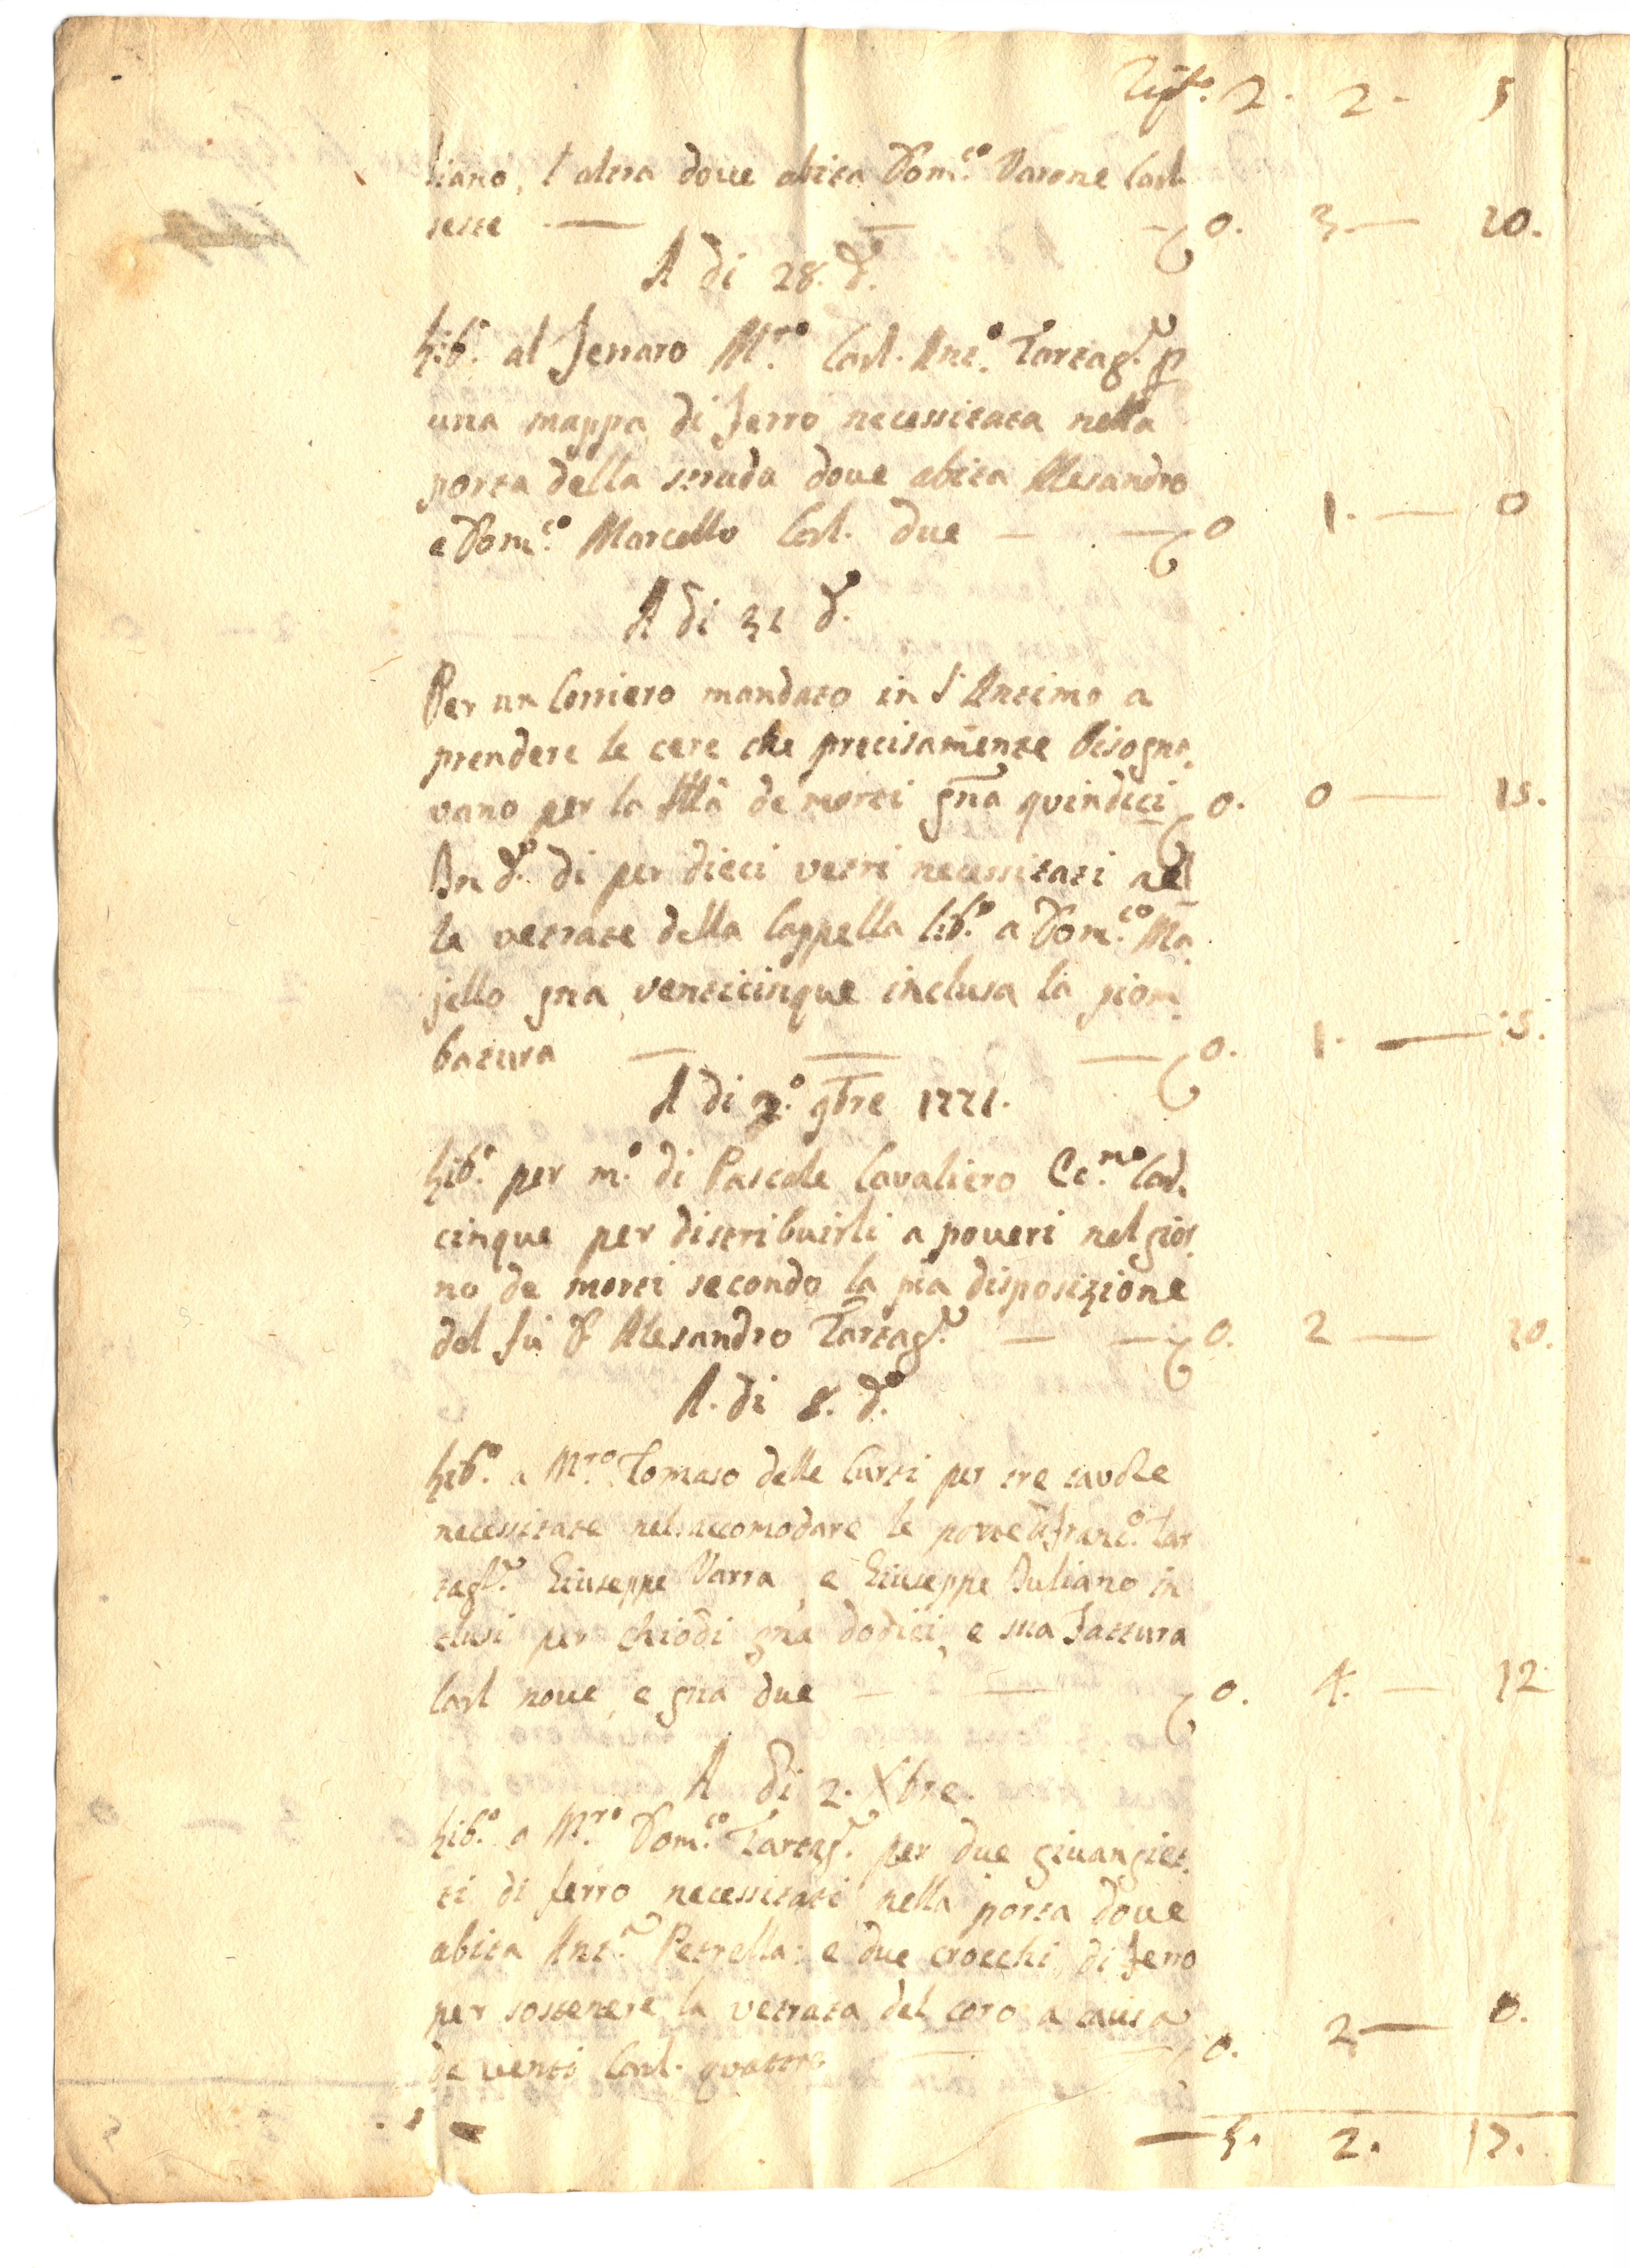 2. 2. 5
liano, l'altra dove abita Dom.co Varone Carl.
sette — — — 0. 3. — 10.
A di 28. d.o
Lib.o al Ferraro M.ro Carl. Ant.o Tartag.a p
una mappa di ferro necessitata nella
porta della strada dove abita Alesandro
e Dom.co Marcello Carl. due — — 0 1. — 0
A di 31 d.o
Per un Corriero mandato in S. Antimo a
prendere le cere che precisamente bisogna
vano per la de morti gna quindici 0. 0 — 15.
In d.o di per dieci vetri necessitati nel
la vetrate della Cappella lib.o a Dom.co Ma
jello gna venticinque inclusa la piom
batura — — — 0. 1. — 5.
A di 2.o 9bre 1771.
Lib.o per m.o di Pascale Cavaliero Ec.mo Carl.
cinque per distribuirli a poveri nel gior
no de morti secondo la pia disposizione
del fù D. Alesandro Tartag.a — — 0. 2 — 10.
A. di 8. d.o
Lib.o a M.ro Tomaso delle Curti per tre tavole
necessitate nel accomodare le porte di Franc.o Tar
tagl.a Giuseppe Varra, e Giuseppe Iuliano in
clusi per chiodi gna dodici, e sua fattura
Carl nove, e gna due — — 0. 4. — 12
A di 2. Xbre.
Lib.o a M.ro Dom.co Tartag.a per due giuangiet
ti di ferro necessitati nella porta dove
abita Ant.a Petrella: e due crocchi di ferro
per sostenere la vetrata del coro a causa
de venti Carl. quattro — — 0. 2 — 0.
— 5. 2. 17.